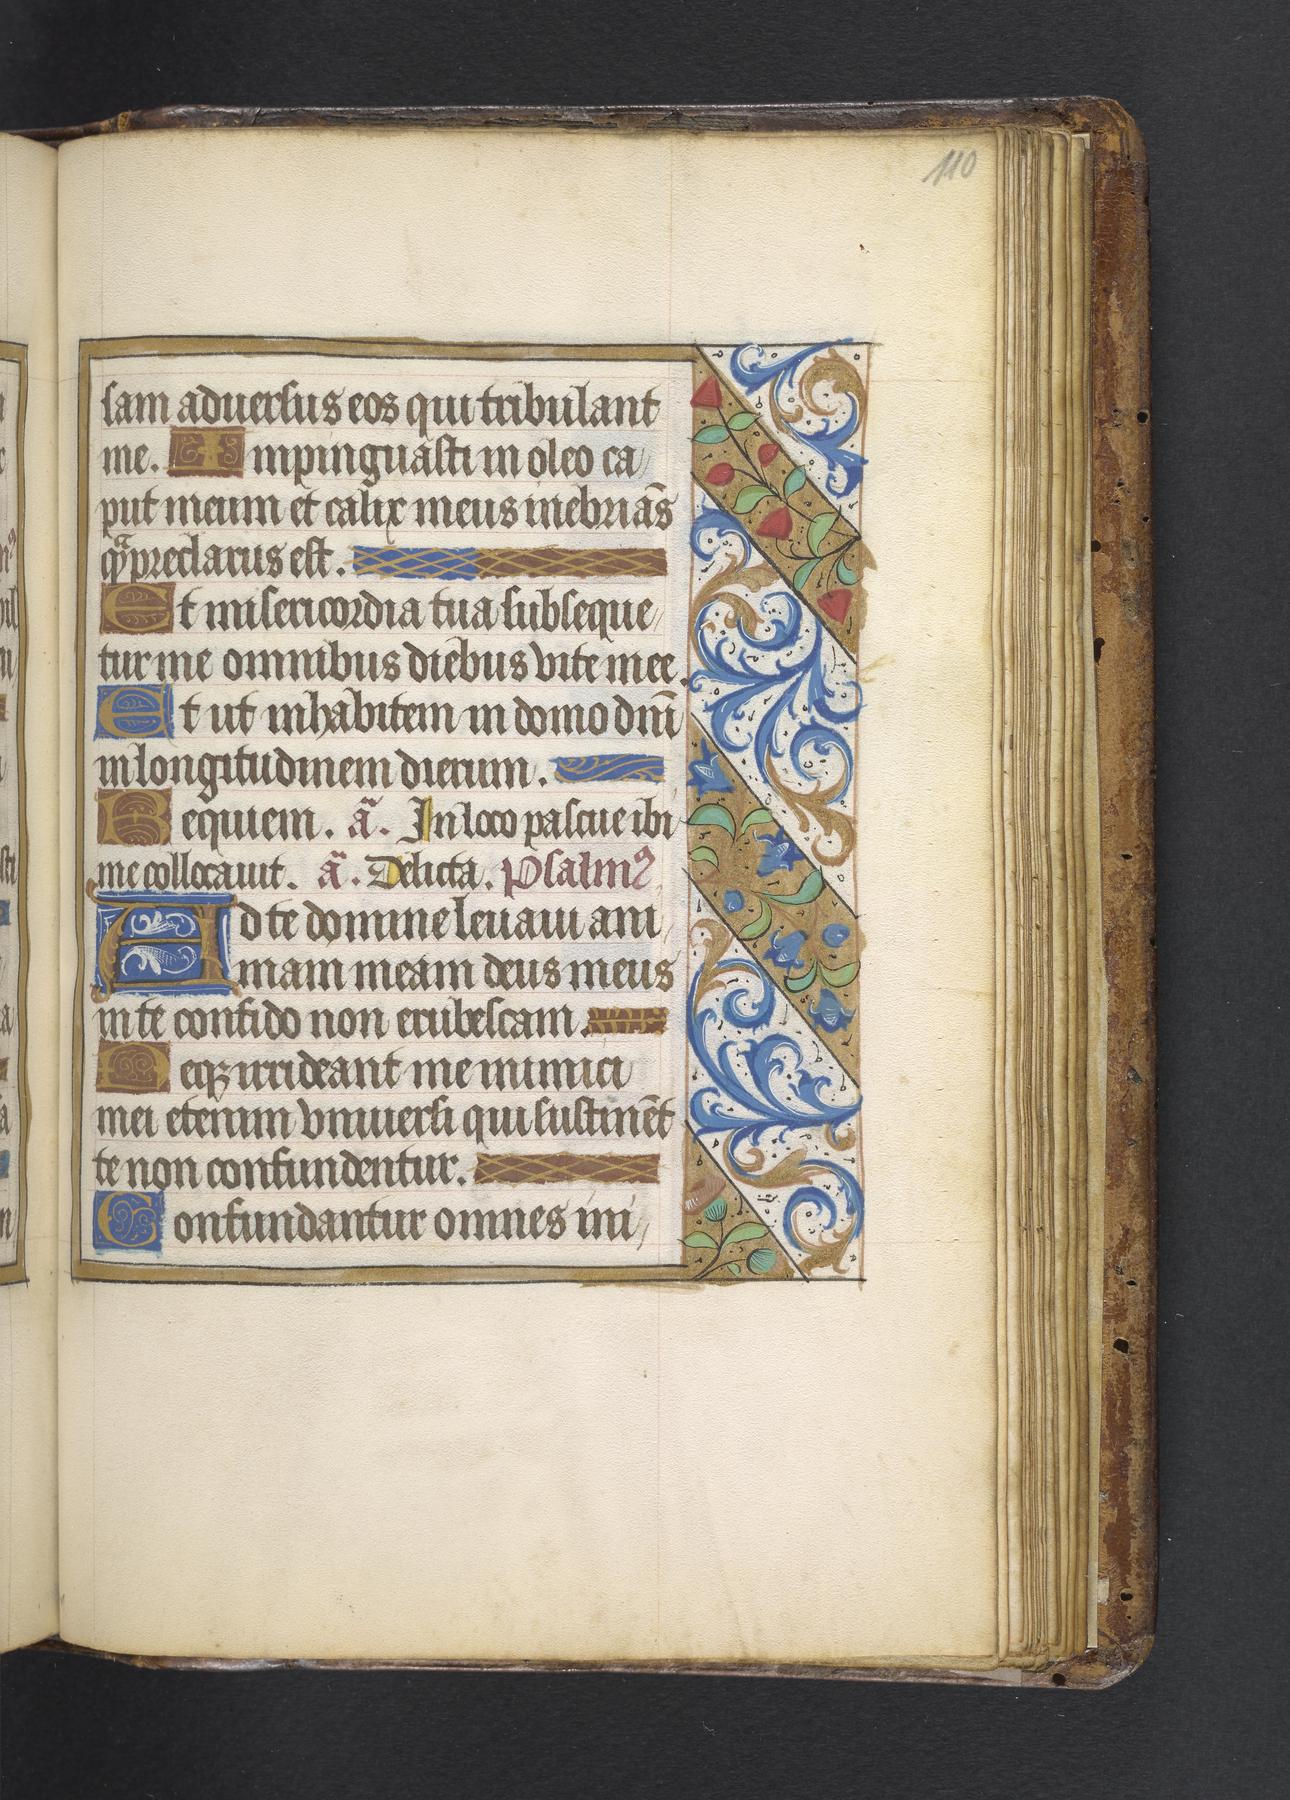 110
sam aduersus eos qui tribulant
me. Impinguasti in oleo ca
put meum et calix meus inebriās
qͣ̄ preclarus est.
Et misericordia tua subseque
tur me omnibus diebus vite mee.
Et ut inhabitem in domo dn̄i
in longitudinem dierum.
Requiem. a᷈. In loco pascue ibi
me collocauit. a᷈. Delicta. Psalmꝰ
Ad te domine leuaui ani
mam meam deus meus
in te confido non erubescam.
Neqꝫ irrideant me inimici
mei etenim vniuersi qui sustinēt
te non confundentur.
Confundantur omnes ini